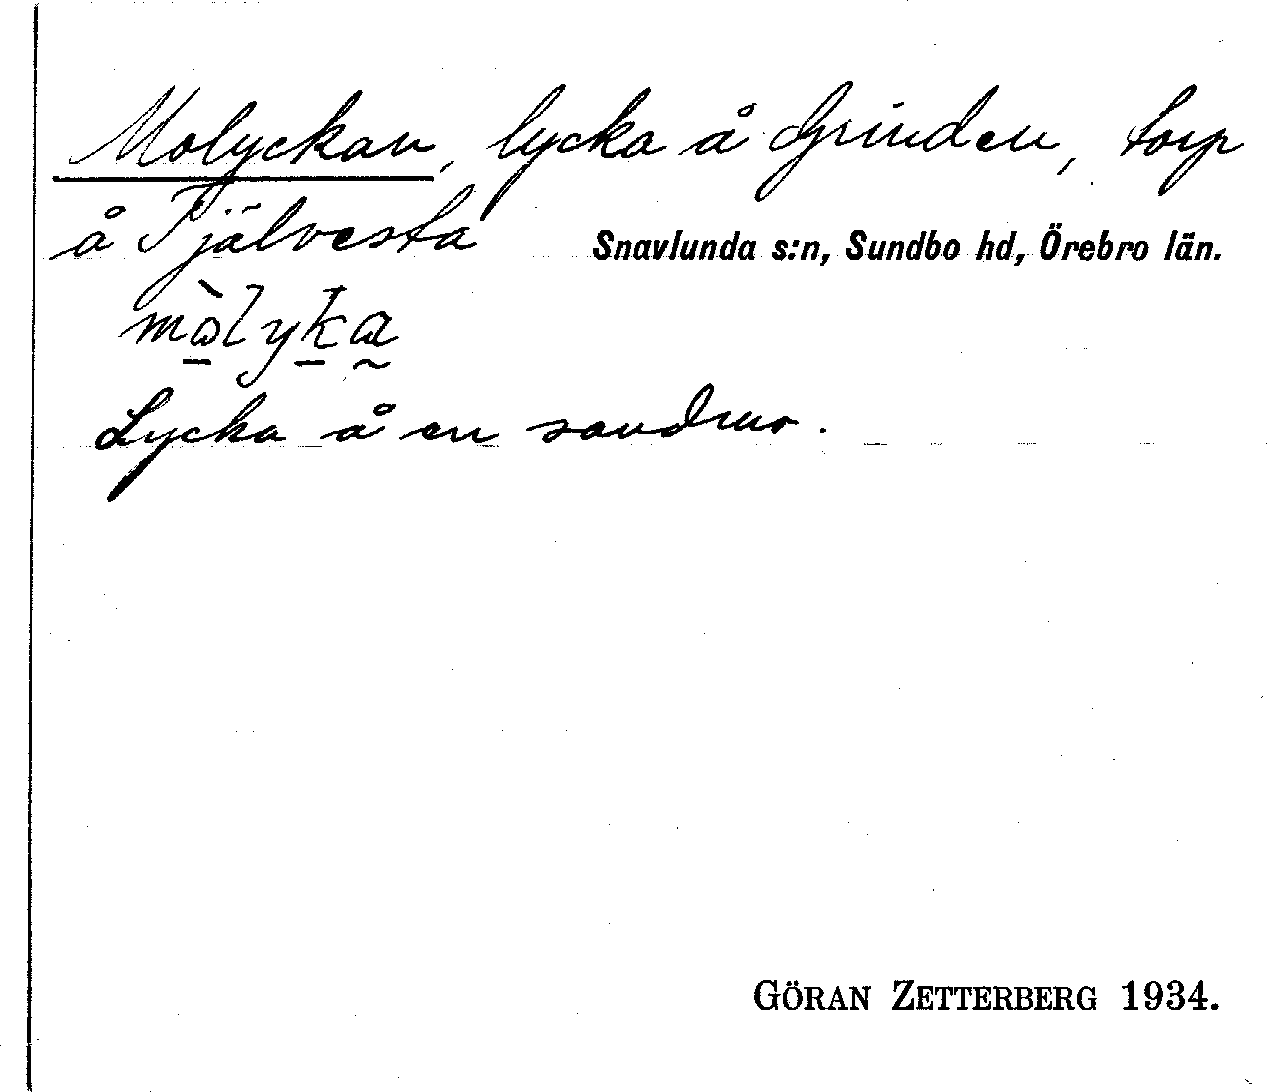 Molyckan, lycka å Grinden, torp
å Tjälvesta Snavlunda s:n, Sundbo hd, Örebro län.
mὼ̲lyk̲a̰
Lycka å en sandmo.
GÖRAN ZETTERBERG 1934.